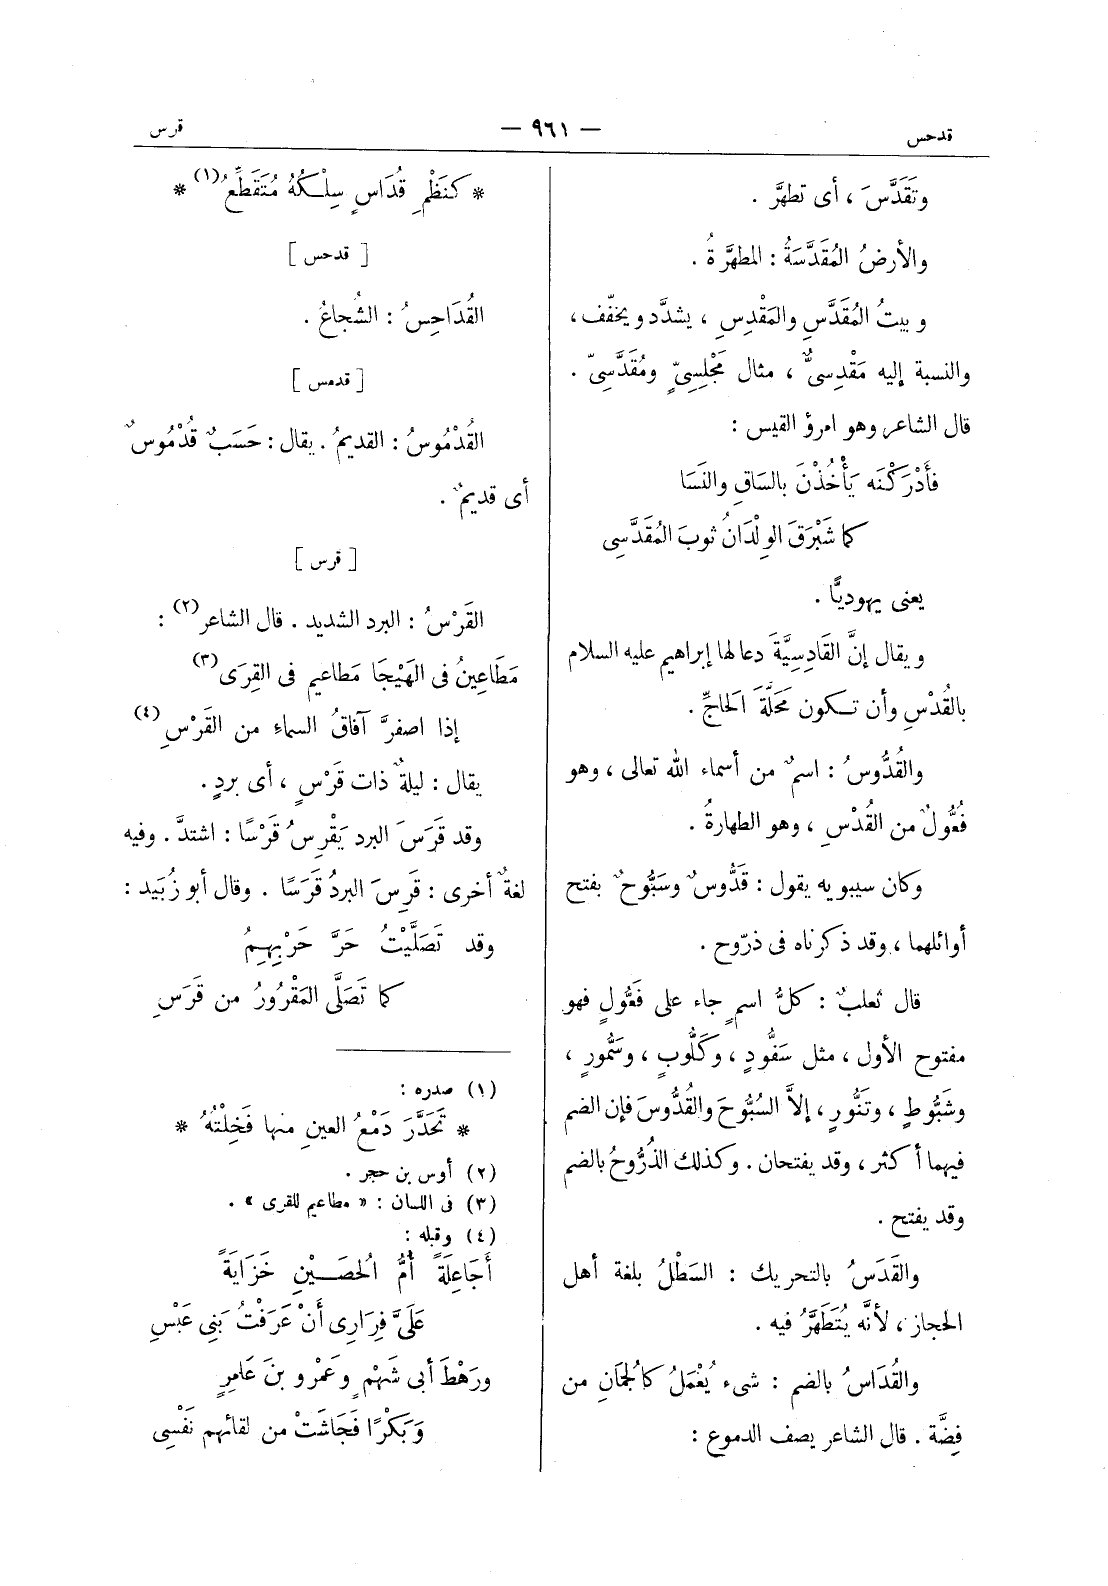 قدحس
— ٩٦١ —
قرس
وتَقَدَّسَ ، أى تطهَّر .
والأرضُ المُقَدَّسَةُ : المطهَّرةُ .
وبيتُ المُقَدَّسِ والمَقْدِسِ ، يشدَّد ويخفّف ،
والنسبة إليه مَقْدِسىٌّ ، مثال مَجْلِسِىٍّ ومُقَدَّسِىّ .
قال الشاعر وهو امرؤ القيس :
فأَدْرَكْنَه يَأْخُذْنَ بالسَاقِ والنَسَا
كما شَبْرَقَ الوِلْدَانُ ثوبَ المُقَدَّسِى
يعنى يهوديًّا .
ويقال إنَّ القَادِسِيَّةَ دعا لها إبراهيم عليه السلام
بالقُدْسِ وأن تـكون مَحَلَّةَ الحَاجِّ .
والقُدُّوسُ : اسمٌ من أسماء الله تعالى ، وهو
فُعُّولٌ من القُدْسِ ، وهو الطهارةُ .
وكان سيبويه يقول : قَدُّوسٌ وسَبُّوحٌ بفتح
أوائلهما ، وقد ذكرناه فى ذرّوح .
قال ثعلبٌ : كلُّ اسمٍ جاء على فَعُّولٍ فهو
مفتوح الأول ، مثل سَفُّودٍ ، وكَلُّوبٍ ، وسَمُّورٍ ،
وشَبُّوطٍ ، وتَنُّورٍ ، إلاَّ السُبُّوحَ والقُدُّوسَ فإن الضم
فيهما أكثر ، وقد يفتحان . وكذلك الذُرُّوحُ بالضم
وقد يفتح .
والقَدَسُ بالتحريك : السَطْلُ بلغة أهل
الحجاز ، لأنَّه يُتَطَهَّرُ فيه .
والقُدَاسُ بالضم : شىء يُعْمَلُ كالجُمَانِ من
فِضَّة . قال الشاعر يصف الدموع :
* كنَظْمِ قُدَاسٍ سِلْـكُهُ مُتَقَطِّعُ(١) *
[ قدحس ]
القُدَاحِسُ : الشُجاعُ .
[ قدمس ]
القُدْمُوسُ : القديمُ . يقال : حَسَبٌ قُدْمُوسٌ
أى قديمٌ .
[ قرس ]
القَرْسُ : البرد الشديد . قال الشاعر(٢) :
مَطَاعِينُ فى الهَيْجَا مَطاعيم فى القِرَى(٣)
إذا اصفرَّ آفاقُ السماءِ من القَرْسِ(٤)
يقال : ليلةٌ ذات قَرْسٍ ، أى بردٍ .
وقد قَرَسَ البرد يَقْرِسُ قَرْسًا : اشتدَّ . وفيه
لغةٌ أخرى : قَرِسَ البردُ قَرَسًا . وقال أبو زُبَيد :
وقد تَصَلَّيْتُ حَرَّ حَرْبِهِمُ
كما تَصَلَّى المَقْرُورُ من قَرَسِ
(١) صدره :
* تَحَدَّرَ دَمْعُ العينِ منها فَخِلْتُهُ *
(٢) أوس بن حجر .
(٣) فى اللسان : « مطاعيم للقرى » .
(٤) وقبله :
أَجَاعِلَةً أُمُّ الحُصَـيْنِ خَزَايَةً
عَلَىَّ فِرَارِى أَنْ عَرَفْتُ بَنِى عَبْسِ
ورَهْطَ أبى شَهْمٍ وعَمْرو بنَ عَامِرٍ
وَبَكْرًا فَجَاشَتْ من لقائهم نَفْسِى